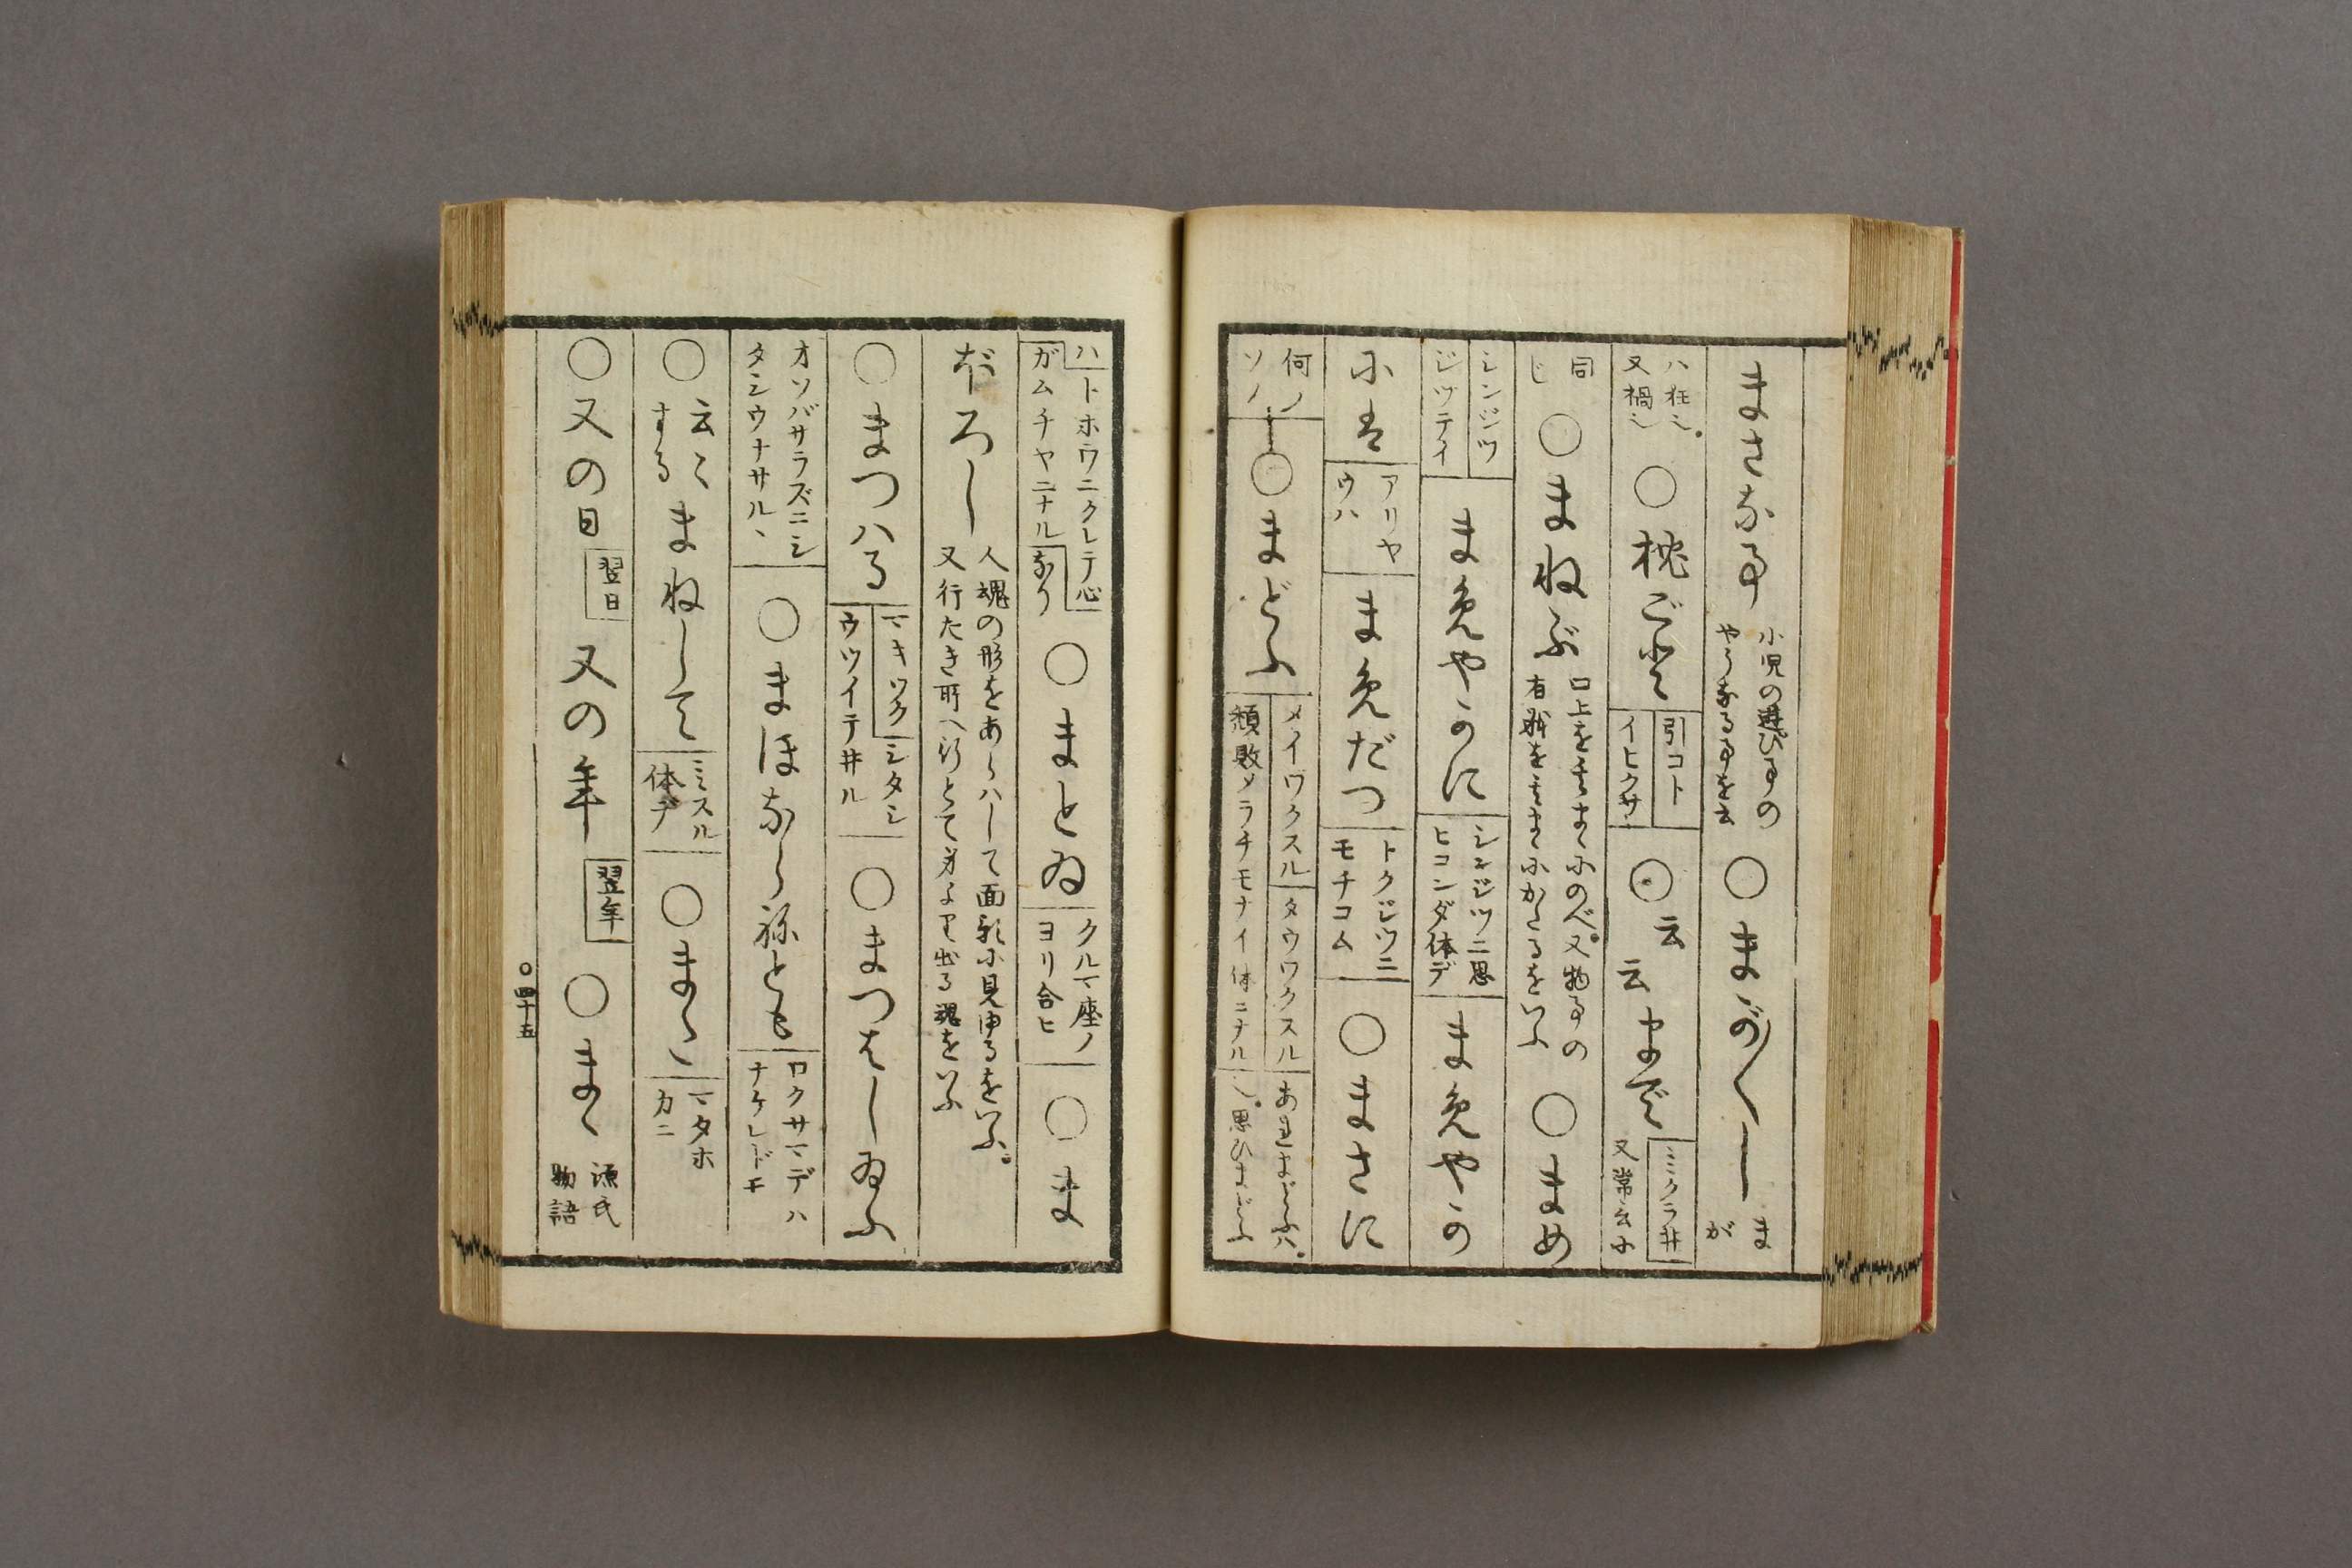 まさなる事 小児の遊び事の やうなる事を云 ○まが〳〵し ま が
ハ枉也。 又禍也 ○枕ごと 引コト イヒクサ ○云 云 まで ミミクラ井 又常云ふ
同 じ ○まねぶ 口上を其まゝにのべ。又物事の 有形を其まゝにかたるをいふ ○まめ
シンジツ ジツテイ まめやかに シンジツニ思 ヒコンダ体デ まめやかの
小は アリヤ ウハ まめだつ トクジツニ モチコム ○まさに
何ノ ソノ ○まどふ メイワクスル タウワクスル 頽敗メラチモナイ体ニナル あきまどふハ。 思ひまどふ
ハトホウニクレテ心 ガムチヤニナル なり ○まとゐ クルマ座ノ ヨリ合ヒ ○ま
ぼろし 人魂の形をあらハして面影に見ゆるをいふ。 又行たき所へ行とて身より出る魂をいふ
○まつハる マキツク シタシ ウツイテ井ル ○まつはしゐふ
オソバサラズニシ タシウナサルヽ ○まほならねども ロクサマデハ ナケレドモ
○云々 する まねして ミミスル 体デ ○まだ マタホ カニ
○又の日 翌日 又の年 翌年 ○まく 源氏 物語
○四十五